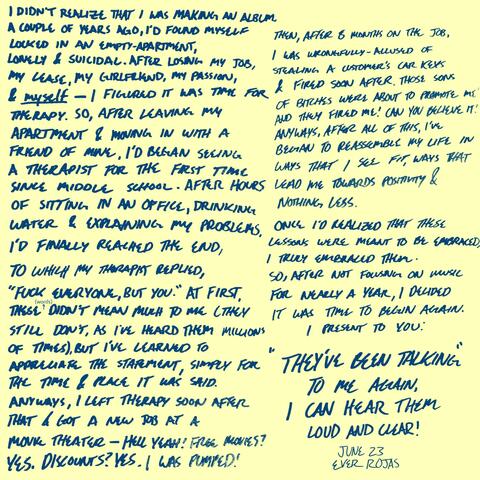 I DIDN'T REALIZE THAT I WAS MAKING AN ALBUM.
A COUPLE OF YEARS AGO, I'D FOUND MYSELF
LOCKED IN AN EMPTY-APARTMENT,
LONELY & SUICIDAL. AFTER LOSING MY JOB,
MY LEASE, MY GIRLFRIEND, MY PASSION,
& MYSELF — I FIGURED IT WAS TIME FOR
THERAPY. SO, AFTER LEAVING MY
APARTMENT & MOVING IN WITH A
FRIEND OF MINE, I'D BEGAN SEEING
A THERAPIST FOR THE FIRST TIME
SINCE MIDDLE SCHOOL. AFTER HOURS
OF SITTING IN AN OFFICE, DRINKING
WATER & EXPLAINING MY PROBLEMS,
I'D FINALLY REACHED THE END,
TO WHICH MY THERAPIST REPLIED,
"FUCK EVERYONE, BUT YOU." AT FIRST,
(WORDS)
THESE DIDN'T MEAN MUCH TO ME (THEY
STILL DON'T, AS I'VE HEARD THEM MILLIONS
OF TIMES), BUT I'VE LEARNED TO
APPRECIATE THE STATEMENT, SIMPLY FOR
THE TIME & PLACE IT WAS SAID.
ANYWAYS, I LEFT THERAPY SOON AFTER
THAT & GOT A NEW JOB AT A
MOVIE THEATER — HELL YEAH! FREE MOVIES?
YES. DISCOUNTS? YES. I WAS PUMPED!
THEN, AFTER 8 MONTHS ON THE JOB,
I WAS WRONGFULLY-ACCUSED OF
STEALING A CUSTOMER'S CAR KEYS
& FIRED SOON AFTER. THOSE SONS
OF BITCHES WERE ABOUT TO PROMOTE ME
AND THEY FIRED ME! CAN YOU BELIEVE IT!
ANYWAYS, AFTER ALL OF THIS, I'VE
BEGAN TO REASSEMBLE MY LIFE IN
WAYS THAT I SEE FIT, WAYS THAT
LEAD ME TOWARDS POSITIVITY &
NOTHING LESS.
ONCE I'D REALIZED THAT THESE
LESSONS WERE MEANT TO BE EMBRACED,
I TRULY EMBRACED THEM.
SO, AFTER NOT FOCUSING ON MUSIC
FOR NEARLY A YEAR, I DECIDED
IT WAS TIME TO BEGIN AGAIN.
I PRESENT TO YOU:
"THEY'VE BEEN TALKING"
TO ME AGAIN,
I CAN HEAR THEM
LOUD AND CLEAR!
JUNE 23
EVER ROJAS